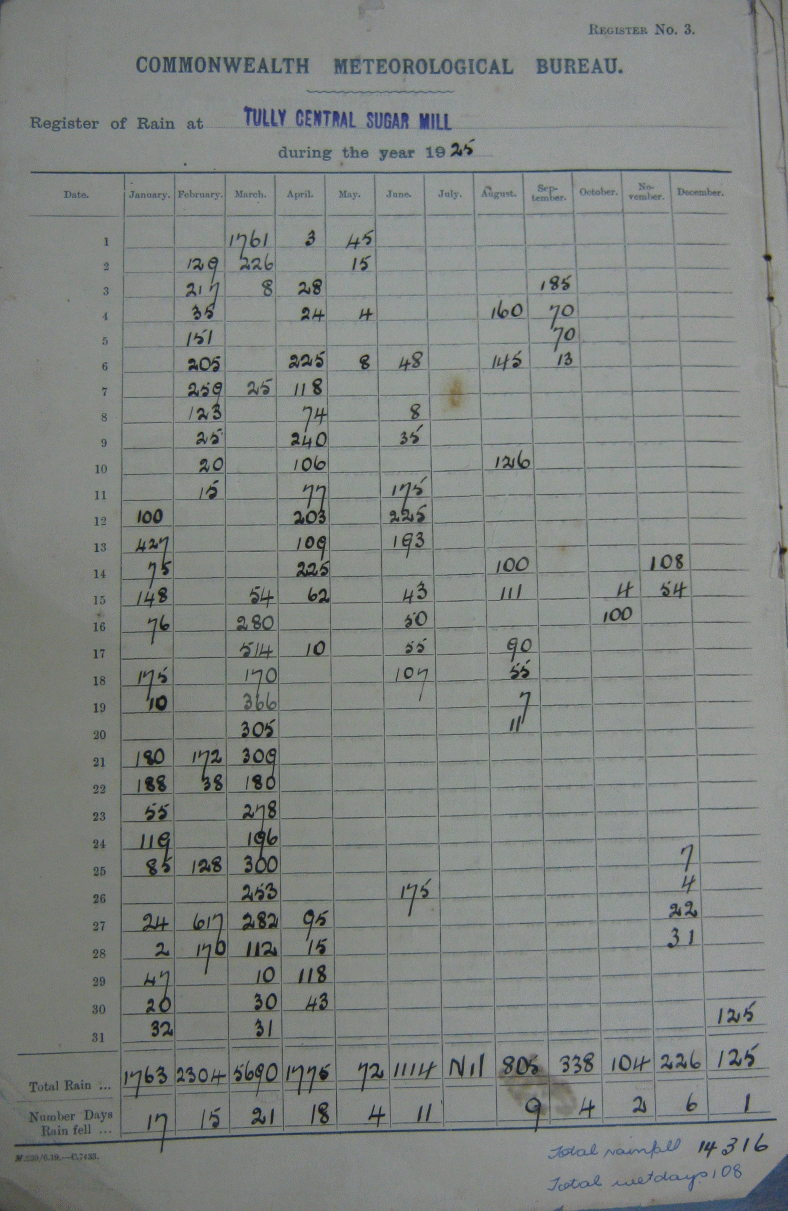 REGISTER No. 3.
COMMONWEALTH METEOROLOGICAL BUREAU.
Register of Rain at TULLY CENTRAL SUGAR MILL
during the year 1925
Date. January. February. March. April. May. June. July. August. September. October. November. December.
1 1761 3 45
2 129 226 15
3 217 8 28 185
4 35 24 4 160 70
5 151 70
6 205 225 8 48 145 13
7 259 25 118
8 123 74 8
9 25 240 35
10 20 106 126
11 15 77 175
12 100 203 225
13 427 109 193
14 75 225 100 108
15 148 54 62 43 111 4 54
16 76 280 50 100
17 514 10 55 90
18 175 170 107 55
19 10 366 7
20 305 11
21 180 172 309
22 188 38 180
23 55 278
24 119 196
25 85 128 300 7
26 253 175 4
27 24 617 282 95 22
28 2 170 112 15 31
29 47 10 118
30 20 30 43
31 32 31 125
Total Rain ... 1763 2304 5690 1775 72 1114 Nil 805 338 104 226 125
Number Days Rain fell ... 17 15 21 18 4 11 9 4 2 6 1
Total rainfall 14316
Total wetdays 108